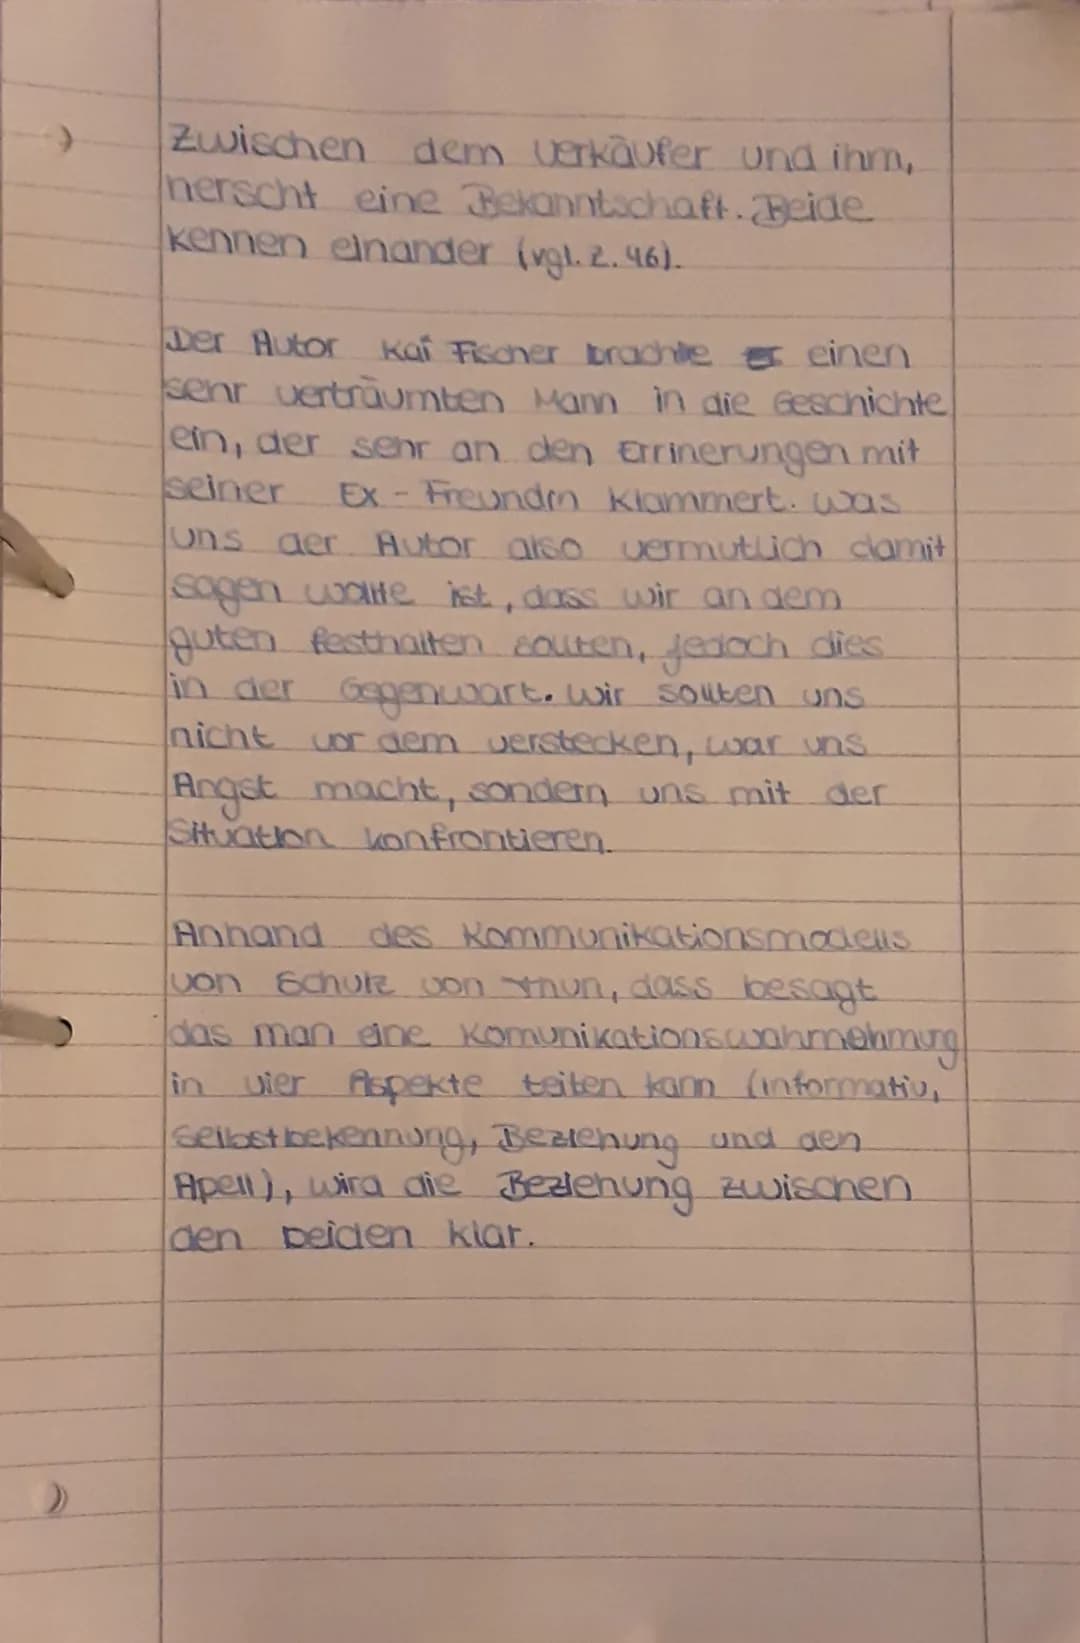 Zwischen dem Verkäufer und ihm,
herscht eine Bekanntschaft. Beide
kennen einander (vgl. Z. 46).
Der Autor Kai Fischer brachte einen
sehr verträumten Mann in die Geschichte
ein, der sehr an den Errinerungen mit
seiner Ex-Freundin klammert. Was
uns der Autor also vermutlich damit
sagen wollte ist, dass wir an dem
guten festhalten sollten, jedoch dies
in der Gegenwart. Wir sollten uns
nicht vor dem verstecken, war uns
Angst macht, sondern uns mit der
Situation konfrontieren.
Anhand des Kommunikationsmodells
von Schulz von Thun, dass besagt
das man eine Komunikationswahrnehmung
in vier Aspekte teilen kann (informativ,
Selbstbekennung, Beziehung und den
Apell), wird die Beziehung zwischen
den beiden klar.